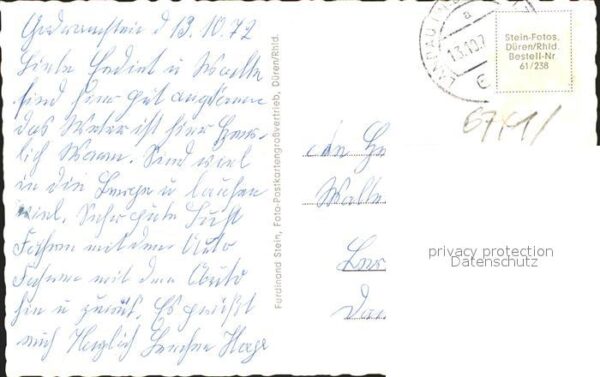 d 13.10.72
Liebe Hedint u Walte
sind hier gut angekommen
das Weter ist hier
lich Warm. Sind viel
in die Berge u laufen
viel. Sehr gute Luft
Fahren mit dem Auto
Fahren mit dem Auto
hin u zurück. Es grüßt
euch Herzlich
Ferdinand Stein, Foto-Postkartengroßvertrieb, Düren/Rhld.
LANDAU
a
13.10.7
Stein-Fotos,
Düren/Rhld.
Bestell-Nr
61/238
Walte
privacy protection
Datenschutz